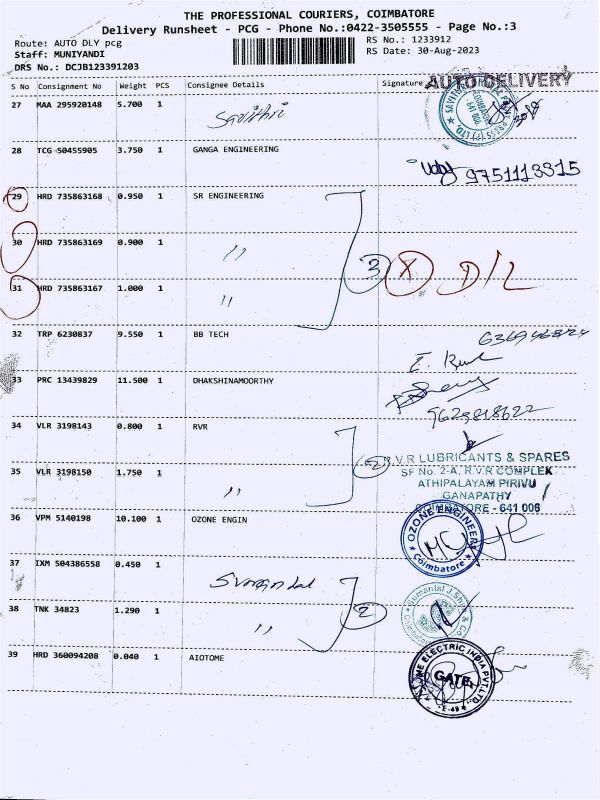 THE PROFESSIONAL COURIERS, COIMBATORE
Delivery Runsheet - PCG - Phone No.:0422-3505555 - Page No.:3
Route: AUTO DLY pcg
RS No.: 1233912
Staff: MUNIYANDI
RS Date: 30-Aug-2023
DRS No.: DCJB123391203
S No Consignment No Weight PCS Consignee Details Signature
AUTO DELIVERY
27 MAA 295920148 5.700 1 Savithri
28 TCG 50455905 3.750 1 GANGA ENGINEERING
9751113315
29 HRD 735863168 0.950 1 SR ENGINEERING
30 HRD 735863169 0.900 1 "
3 X D/L
31 HRD 735863167 1.000 1 "
32 TRP 6230837 9.550 1 BB TECH
33 PRC 13439829 11.500 1 DHAKSHINAMOORTHY
9629818622
34 VLR 3198143 0.800 1 RVR
2
R.V.R LUBRICANTS & SPARES
SF No. 2-A, R.V.R COMPLEK
35 VLR 3198150 1.750 1 "
ATHIPALAYAM PIRIVU
GANAPATHY
COIMBATORE - 641 006
36 VPM 5140198 10.100 1 OZONE ENGIN
OZONE ENGINEERS
Coimbatore
37 IXM 504386558 0.450 1
38 TNK 34823 1.290 1 "
2
39 HRD 360094208 0.040 1 AIOTOME
ELECTRIC INDIA PVT LTD.
GATE